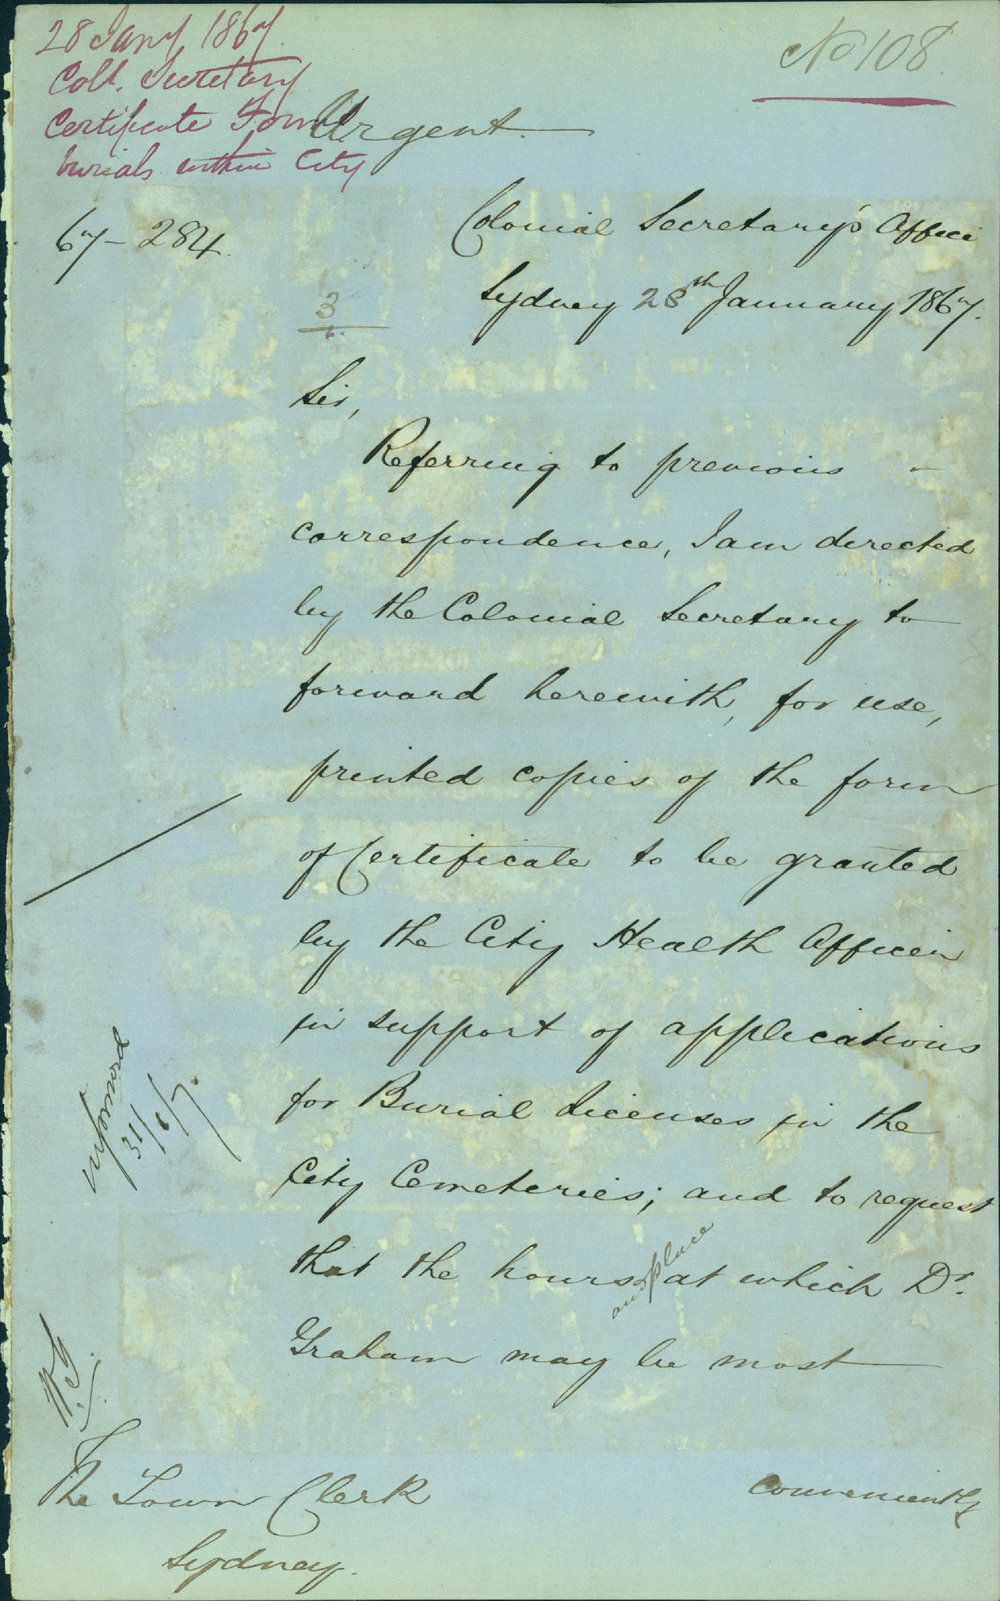 28 Jany 1867.
Coll. Secretary
Certificate Form
burials within City
No 108
Urgent.
67-284.
Colonial Secretary's Office
Sydney 28th January 1867.
3
Sir,
Referring to previous
correspondence, I am directed
by the Colonial Secretary to
forward herewith, for use,
printed copies of the form
of Certificate to be granted
by the City Health Officer
in support of applications
for Burial Licenses in the
City Cemeteries; and to request
that the hours and place at which Dr.
Graham may be most
informed
31/1/67.
The Town Clerk
Sydney.
conveniently